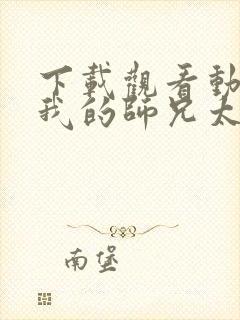 下載觀看動
我的師兄太
南堡